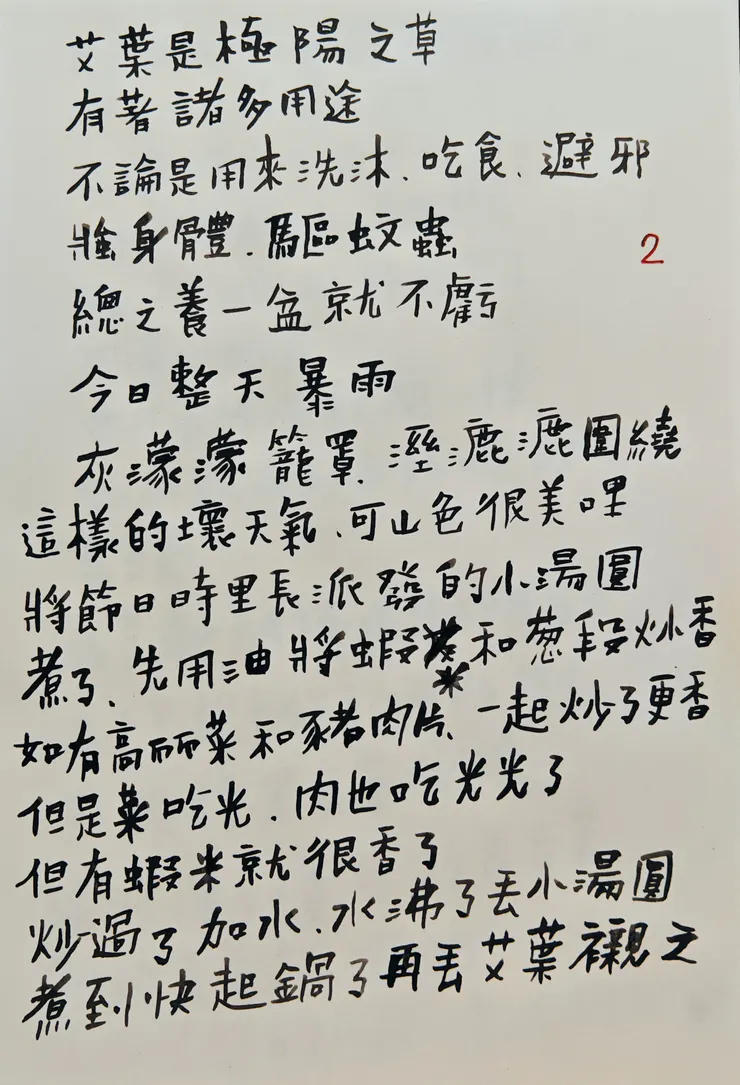 艾葉是極陽之草
有著諸多用途
不論是用來洗沐、吃食、避邪
強身骨豊、驅蚊蟲
2
總之養一盆就不虧
今日整天暴雨
灰濛濛籠罩、溼漉漉圍繞
這樣的壞天氣、可山色很美哩
將節日時里長派發的小湯圓
煮了、先用油將蝦米和葱段炒香
如有高麗菜和豬肉片、一起炒了更香
但是菜吃光、肉也吃光光了
但有蝦米就很香了
炒過了加水、水沸了丟小湯圓
煮到快起鍋了再丟艾葉襯之